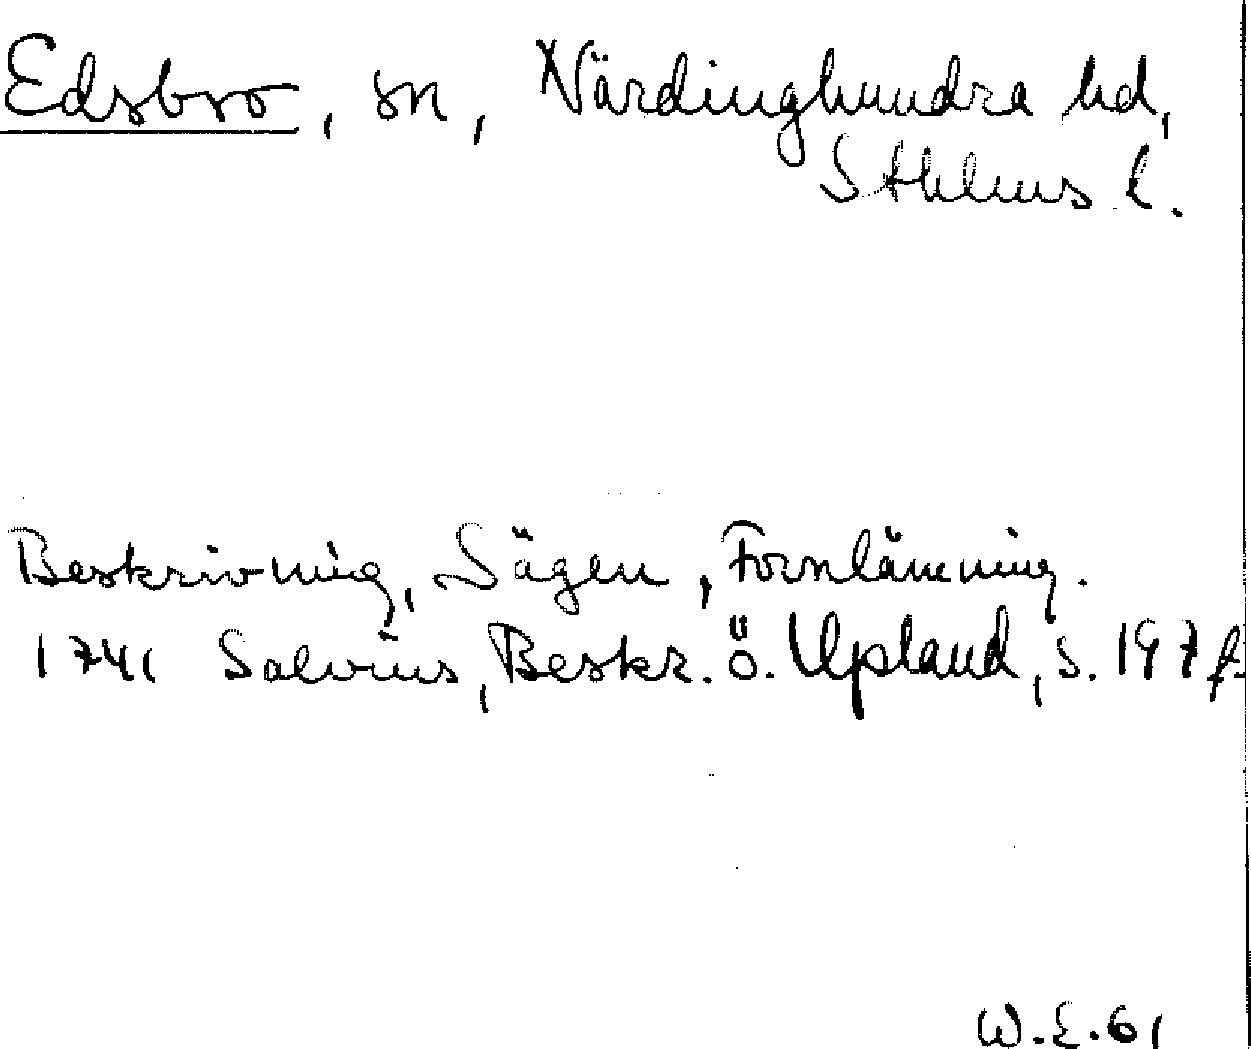 Edsbro, sn, Närdinghundra hd,
Sthlms l.
Beskrivning, Sägen, Fornlämning.
1741 Salvius, Beskr. ö. Upland, s. 197 f.
W.E.61